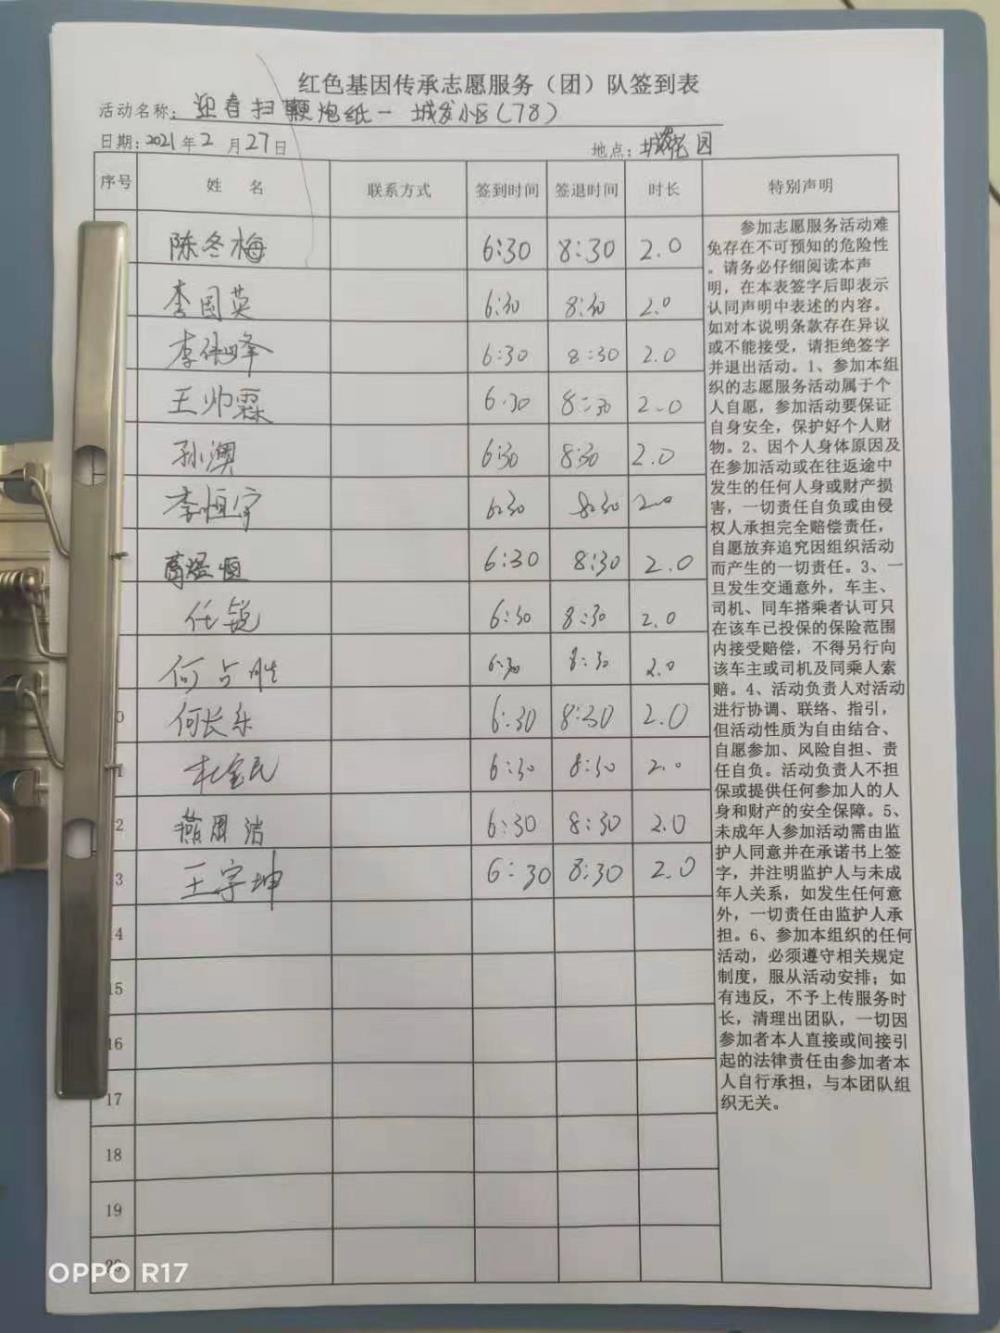 红色基因传承志愿服务（团）队签到表
活动名称：迎春扫鞭炮纸一 城发小区(78)
日期：2021年2月27日 地点：城发花园
序号 姓名 联系方式 签到时间 签退时间 时长 特别声明
陈冬梅 6:30 8:30 2.0
李国英 6:30 8:30 2.0
李伟峰 6:30 8:30 2.0
王帅霖 6:30 8:30 2.0
孙澳 6:30 8:30 2.0
李恒宇 6:30 8:30 2.0
恒 6:30 8:30 2.0
任锐 6:30 8:30 2.0
何占胜 6:30 8:30 2.0
0 何长乐 6:30 8:30 2.0
1 杜宝民 6:30 8:30 2.0
2 燕周洁 6:30 8:30 2.0
3 王宇坤 6:30 8:30 2.0
14
15
16
17
18
19
20
参加志愿服务活动难
免存在不可预知的危险性
。请务必仔细阅读本声
明，在本表签字后即表示
认同声明中表述的内容。
如对本说明条款存在异议
或不能接受，请拒绝签字
并退出活动。1、参加本组
织的志愿服务活动属于个
人自愿，参加活动要保证
自身安全，保护好个人财
物。2、因个人身体原因及
在参加活动或在往返途中
发生的任何人身或财产损
害，一切责任自负或由侵
权人承担完全赔偿责任，
自愿放弃追究因组织活动
而产生的一切责任。3、一
旦发生交通意外，车主、
司机、同车搭乘者认可只
在该车已投保的保险范围
内接受赔偿，不得另行向
该车主或司机及同乘人索
赔。4、活动负责人对活动
进行协调、联络、指引，
但活动性质为自由结合、
自愿参加、风险自担、责
任自负。活动负责人不担
保或提供任何参加人的人
身和财产的安全保障。5、
未成年人参加活动需由监
护人同意并在承诺书上签
字，并注明监护人与未成
年人关系，如发生任何意
外，一切责任由监护人承
担。6、参加本组织的任何
活动，必须遵守相关规定
制度，服从活动安排；如
有违反，不予上传服务时
长，清理出团队，一切因
参加者本人直接或间接引
起的法律责任由参加者本
人自行承担，与本团队组
织无关。
OPPO R17